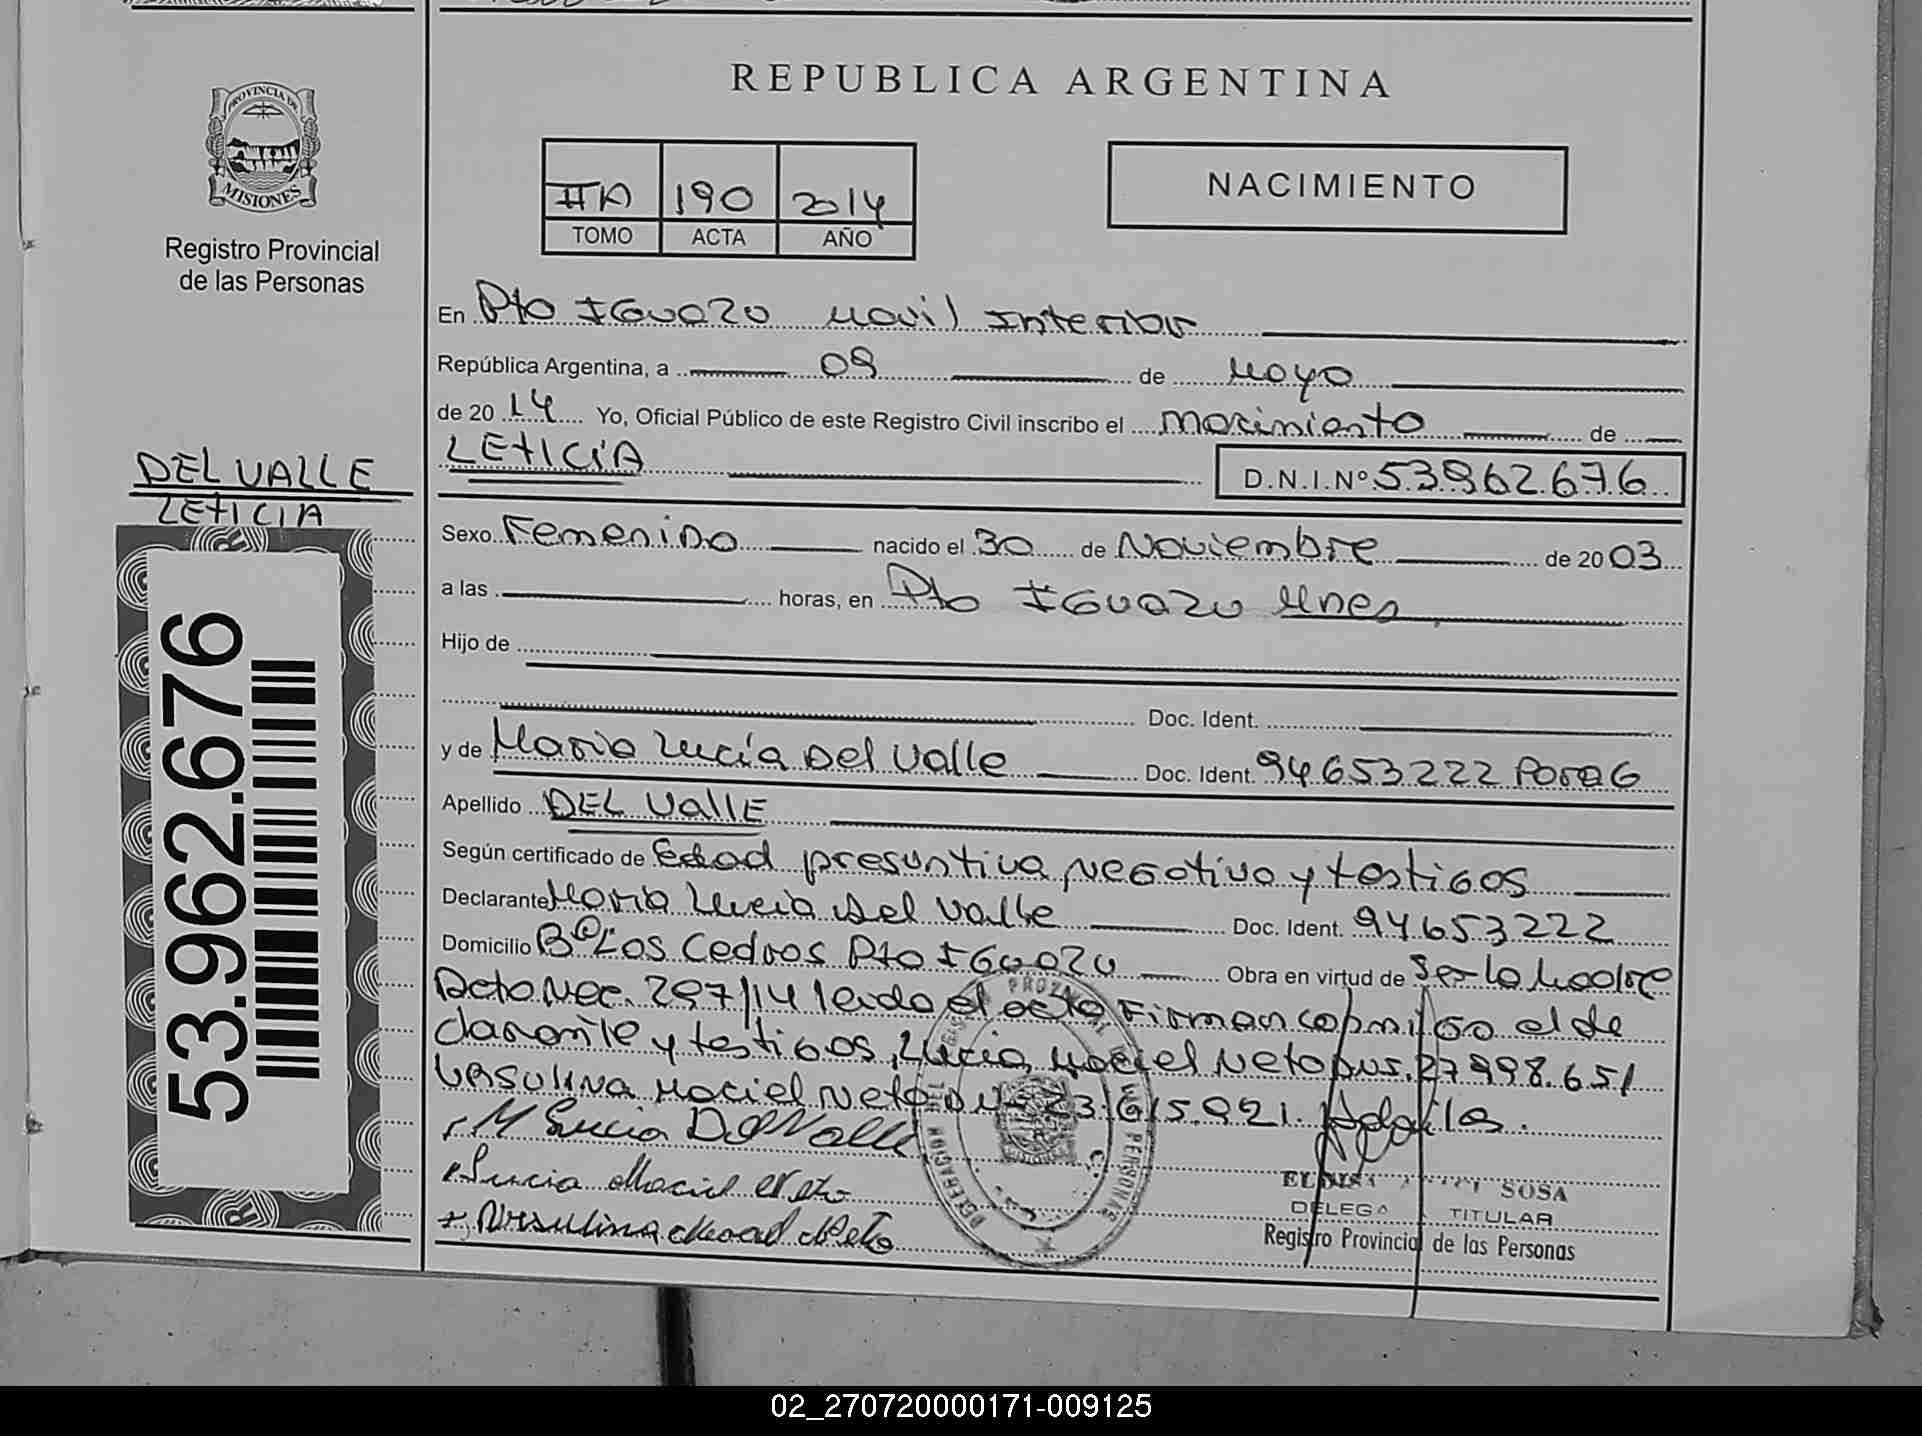 REPUBLICA ARGENTINA
PROVINCIA DE
MISIONES
Registro Provincial
de las Personas
IIA 190 2014
TOMO ACTA AÑO
NACIMIENTO
En Pto IGuazu Movil Interior
República Argentina, a 09 de Mayo
de 2014 Yo, Oficial Público de este Registro Civil inscribo el nacimiento de
LETICIA D.N.I.Nº 53962676
DEL VALLE
LETICIA
53.962.676
Sexo Femenino nacido el 30 de Noviembre de 2003
a las horas, en Pto IGuazu Mnes
Hijo de
Doc. Ident.
y de Maria Lucía Del Valle Doc. Ident. 94653222 ParaG
Apellido DEL VallE
Según certificado de Edad presuntiva, neGativo y testiGos
Declarante Maria Lucia Del Valle Doc. Ident. 94653222
Domicilio Bº Los Cedros Pto IGuazu Obra en virtud de Ser la Madre
Dcto Nac. 297/14 leido el acto Firman conmiGo el de
clarante y testiGos, Lucia Maciel Neto DNI. 27998.651
Ursulina Maciel Neto DNI 23.615.921.
M Lucia Del Valle
Lucia Maciel Neto
Ursulina Maciel Neto
DELEGACION
PERSONAS
SOSA
DELEGA TITULAR
Registro Provincial de las Personas
02_270720000171-009125